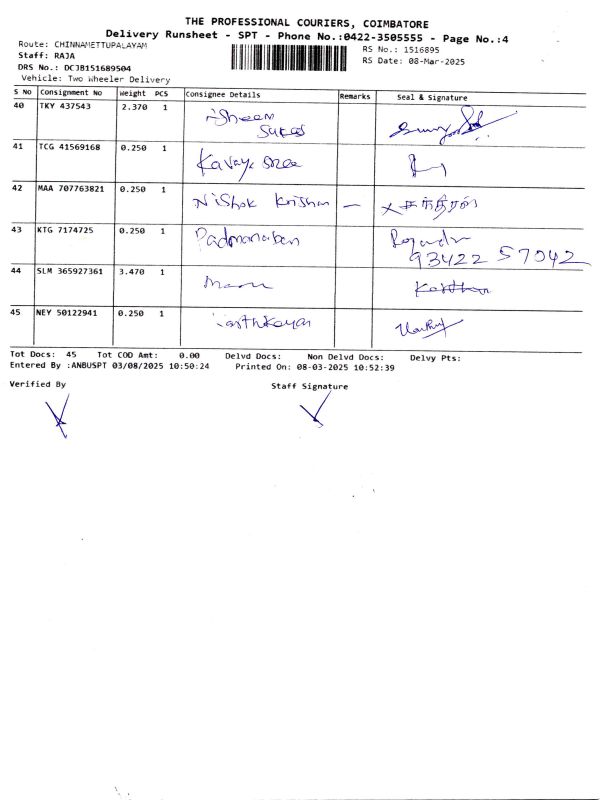 THE PROFESSIONAL COURIERS, COIMBATORE
Delivery Runsheet - SPT - Phone No.:0422-3505555 - Page No.:4
Route: CHINNAMETTUPALAYAM
RS No.: 1516895
Staff: RAJA
RS Date: 08-Mar-2025
DRS No.: DCJB151689504
Vehicle: Two Wheeler Delivery
S No Consignment No Weight PCS Consignee Details Remarks Seal & Signature
40 TKY 437543 2.370 1
41 TCG 41569168 0.250 1 Kavaya sree
42 MAA 707763821 0.250 1 Nishok Krishan —
43 KTG 7174725 0.250 1 Padmanaban
93422 57042
44 SLM 365927361 3.470 1
45 NEY 50122941 0.250 1 Karthikeyan
Tot Docs: 45 Tot COD Amt: 0.00 Delvd Docs: Non Delvd Docs: Delvy Pts:
Entered By :ANBUSPT 03/08/2025 10:50:24 Printed On: 08-03-2025 10:52:39
Verified By Staff Signature